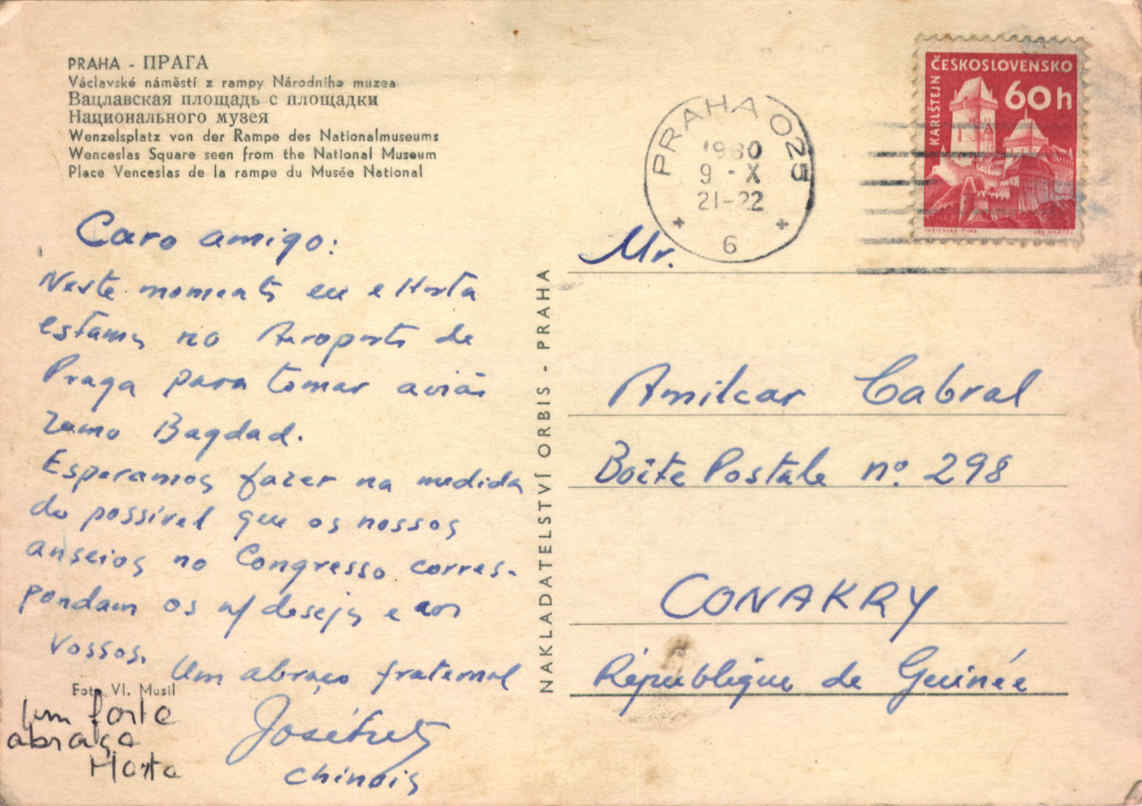 PRAHA - ПРАГА
Václavské náměstí z rampy Národního muzea
Вацлавская площадь с площадки
Национального музея
Wenzelsplatz von der Rampe des Nationalmuseums
Wenceslas Square seen from the National Museum
Place Venceslas de la rampe du Musée National
ČESKOSLOVENSKO
KARLŠTEJN
60h
PRAHA 025
1960
9-X
21-22
6
Caro amigo:
Neste momento eu e Horta
estamos no Aeroporto de
Praga para tomar avião
rumo Bagdad.
Esperamos fazer na medida
do possível que os nossos
anseios no Congresso corres-
pondam os n/ desejos e aos
vossos.
Um abraço fraternal
chinois
Foto Vl. Musil
Um forte
abraço
Horta
NAKLADATELSTVÍ ORBIS - PRAHA
Mr.
Amilcar Cabral
Boîte Postale nº. 298
CONAKRY
République de Guinée